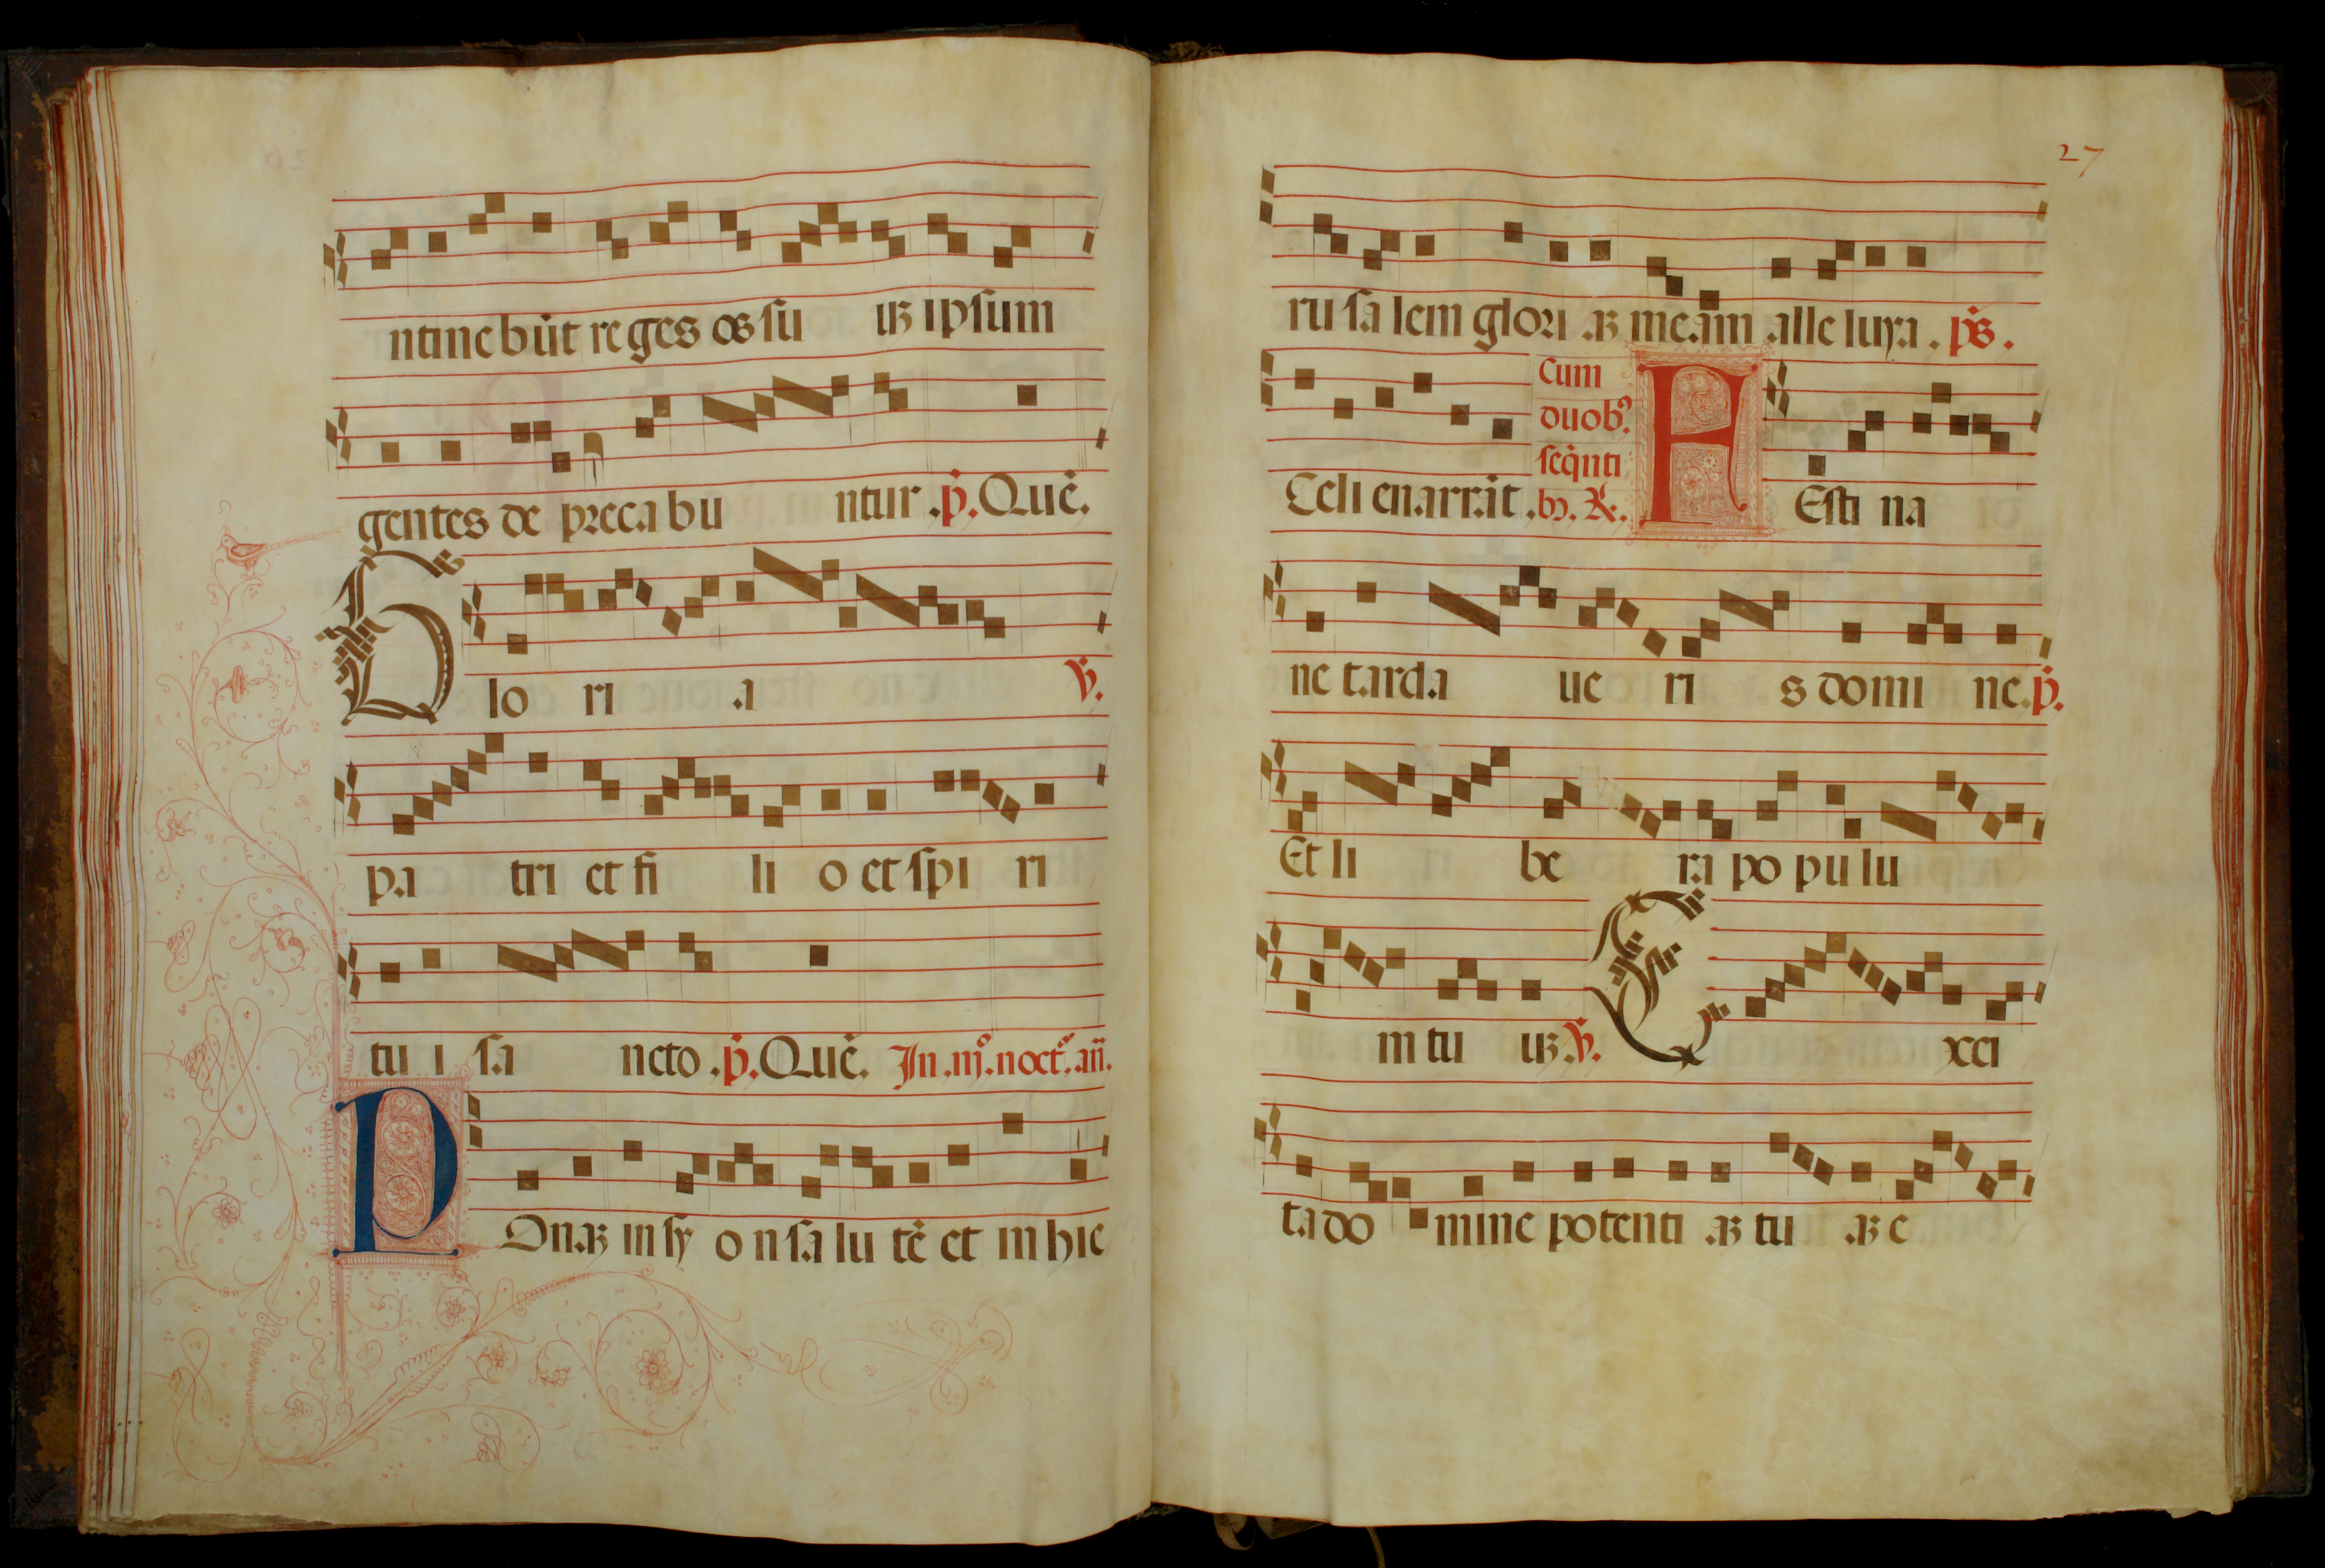 ntinebūt re ges os su uꝫ ipsum
gentes de preca bu ntur .p̄. Quē.
Glo ri a ℣.
pa tri et fi li o et spi ri
tu i sa ncto .p̄. Quē. In .iijº. noctº. añ.
POnaꝫ in sy o n sa lu tē et in hie
27
ru sa lem glori aꝫ meam alle luya . p̄s.
Celi enarrāt . Cum duobꝰ seq̄nti bꝫ. ℟.
FEsti na
ne tarda ue ri s domi ne. p̄.
Et li be ra po pu lu
m tu uꝫ. ℣. Exci
ta do mine potenti aꝫ tu aꝫ e